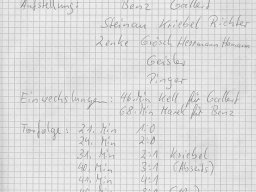 Aufstellung: Benz Gellert
Steinau Kriebel Richter
Zenke Grösch Herrmann Hamann
Geisler
Pinger
Einwechslungen: 46. Min Kell für Gellert
68. Min Marek für Benz
Torfolge: 21. Min 1:0
24. Min 2:0
31. Min 2:1 Kriebel
40. Min 3:1 (Abseits)
41. Min 4:1